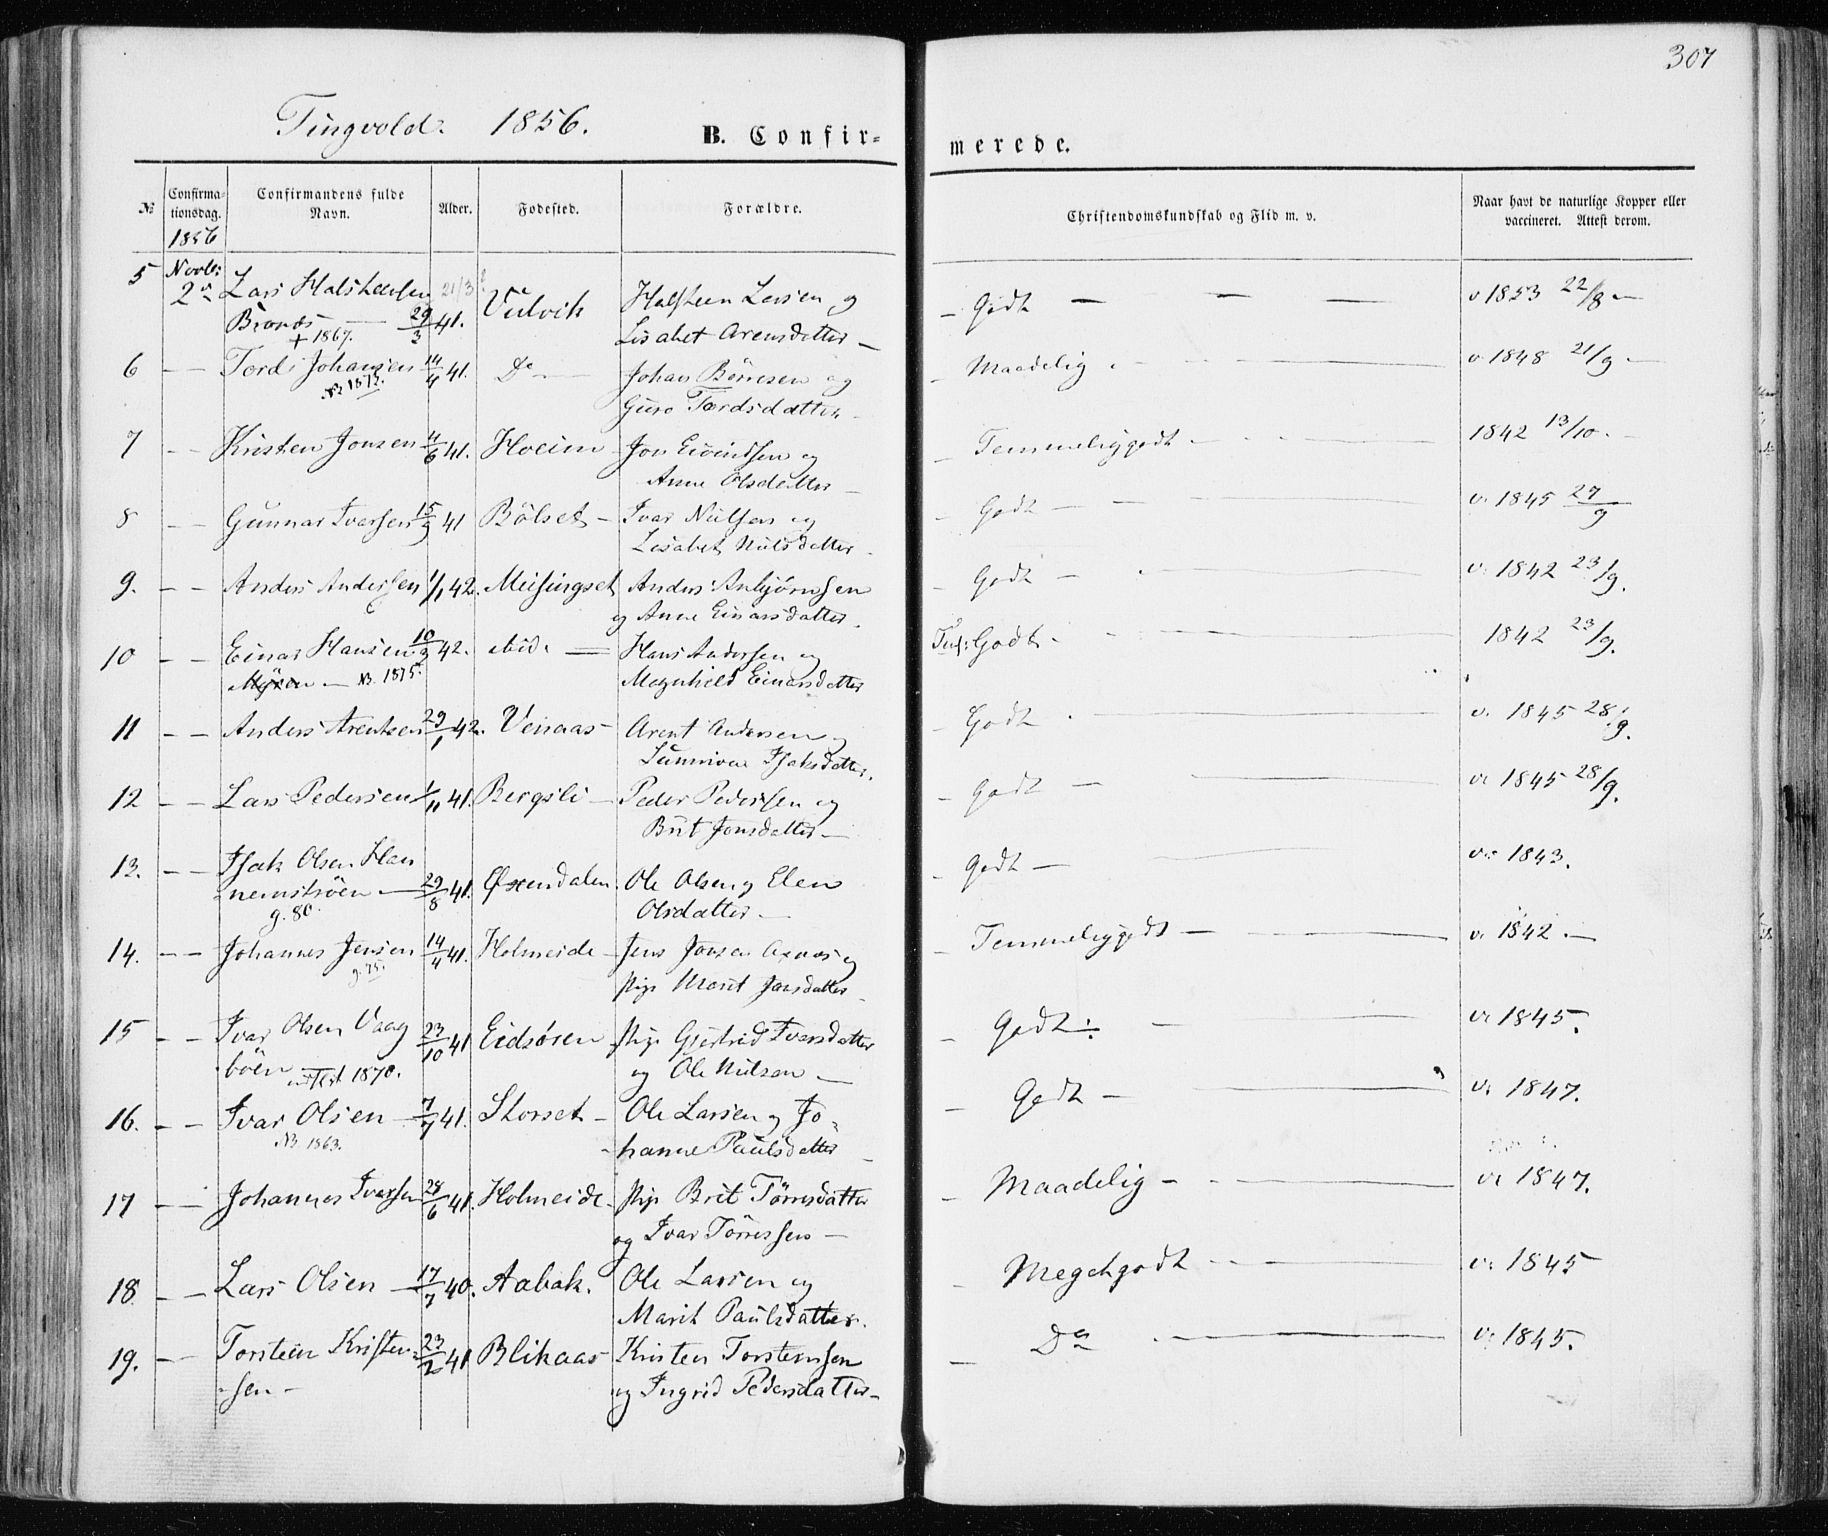 307
Tingvold: 1856.
B. Confir= merede.
№ Confirma=tionsdag. Confirmandens fulde Navn. Alder. Fødested. Forældre. Christendomskundskab og Flid m. v. Naar havt de naturlige Kopper eller vaccineret. Attest derom.
1856
5 Novbr: Lars Halsteensen 21/3 Halsteen Larsen og
2den Vulvik Godt — v 1853 22/8 —
29/3 41. Lisabet Arensdatter —
+ 1867.
6 — — Tord Johansen 14/4 41. Do — Johan Börresen og Maadelig v 1848 21/9 —
NB 1872. Guro Tordsdatter
7 — — Kristen Jonsen 11/6 41. Hoeim Jon Eivindsen og Temmeliggodt 1842 13/10.
Anne Olsdatter —
8 — — Gunnar Iversen 15/9 41 Bölset — Ivar Nielsen og Godt — v. 1845 27/9
Lisabet Nilsdatter
9. — — Anders Andersen 1/1 42. Meisingset Anders Anbjörnsen Godt — v. 1842 23/9.
og Anne Einarsdatter.
10 — — Einar Hansen 10/2 42. ibid. Hans Andersen og Godt. 1842 23/9.
Myren — NB. 1875. Magnhild Einarsdatter
11 — — Anders Arentsen 29/1 42. Venaas — Arent Andersen og Godt v. 1845 28/9.
Sunnive Isaksdatter.
12 — — Lars Pedersen 1/11 41. Bergsli — Peder Pedersen og Godt — v: 1845 28/9.
Brit Jonsdatter —
13. — — Isak Olsen Han
nemsböen — 29/8 41. Øxendalen. Ole Olsen og Elen Godt — v: 1843.
g. 80. Olsdatter —
14. — — Johannes Jensen 14/4 41. Holmeide — Jens Jonsen Axnes og Temmeliggodt — v. 1842. —
g. 75. pige Marit Jonsdatter
15 — — Ivar Olsen Vaag 23/10 41 Eidsören pige Gjertrud Ivarsdatter Godt: v: 1845.
böen 1870. og Ole Nilsen —
16. — — Ivar Olsen — 7/7 41. Storset — Ole Larsen og Jo= Godt — v: 1847.
NB 1863. hanne Paulsdatter
17 — — Johannes Ivarsen 28/6 41. Holmeide. pige Brit Törresdatter Maadelig — v: 1847.
og Ivar Törressen —
18. — — Lars Olsen — 17/7 40. Aabak. Ole Larsen og Megetgodt — v: 1845
Marit Paulsdatter.
19. — — Torstein Kristen= 23/2 41 Blikaas Kristen Torstensen Do v: 1845.
sen — og Ingrid Pedersdatter —